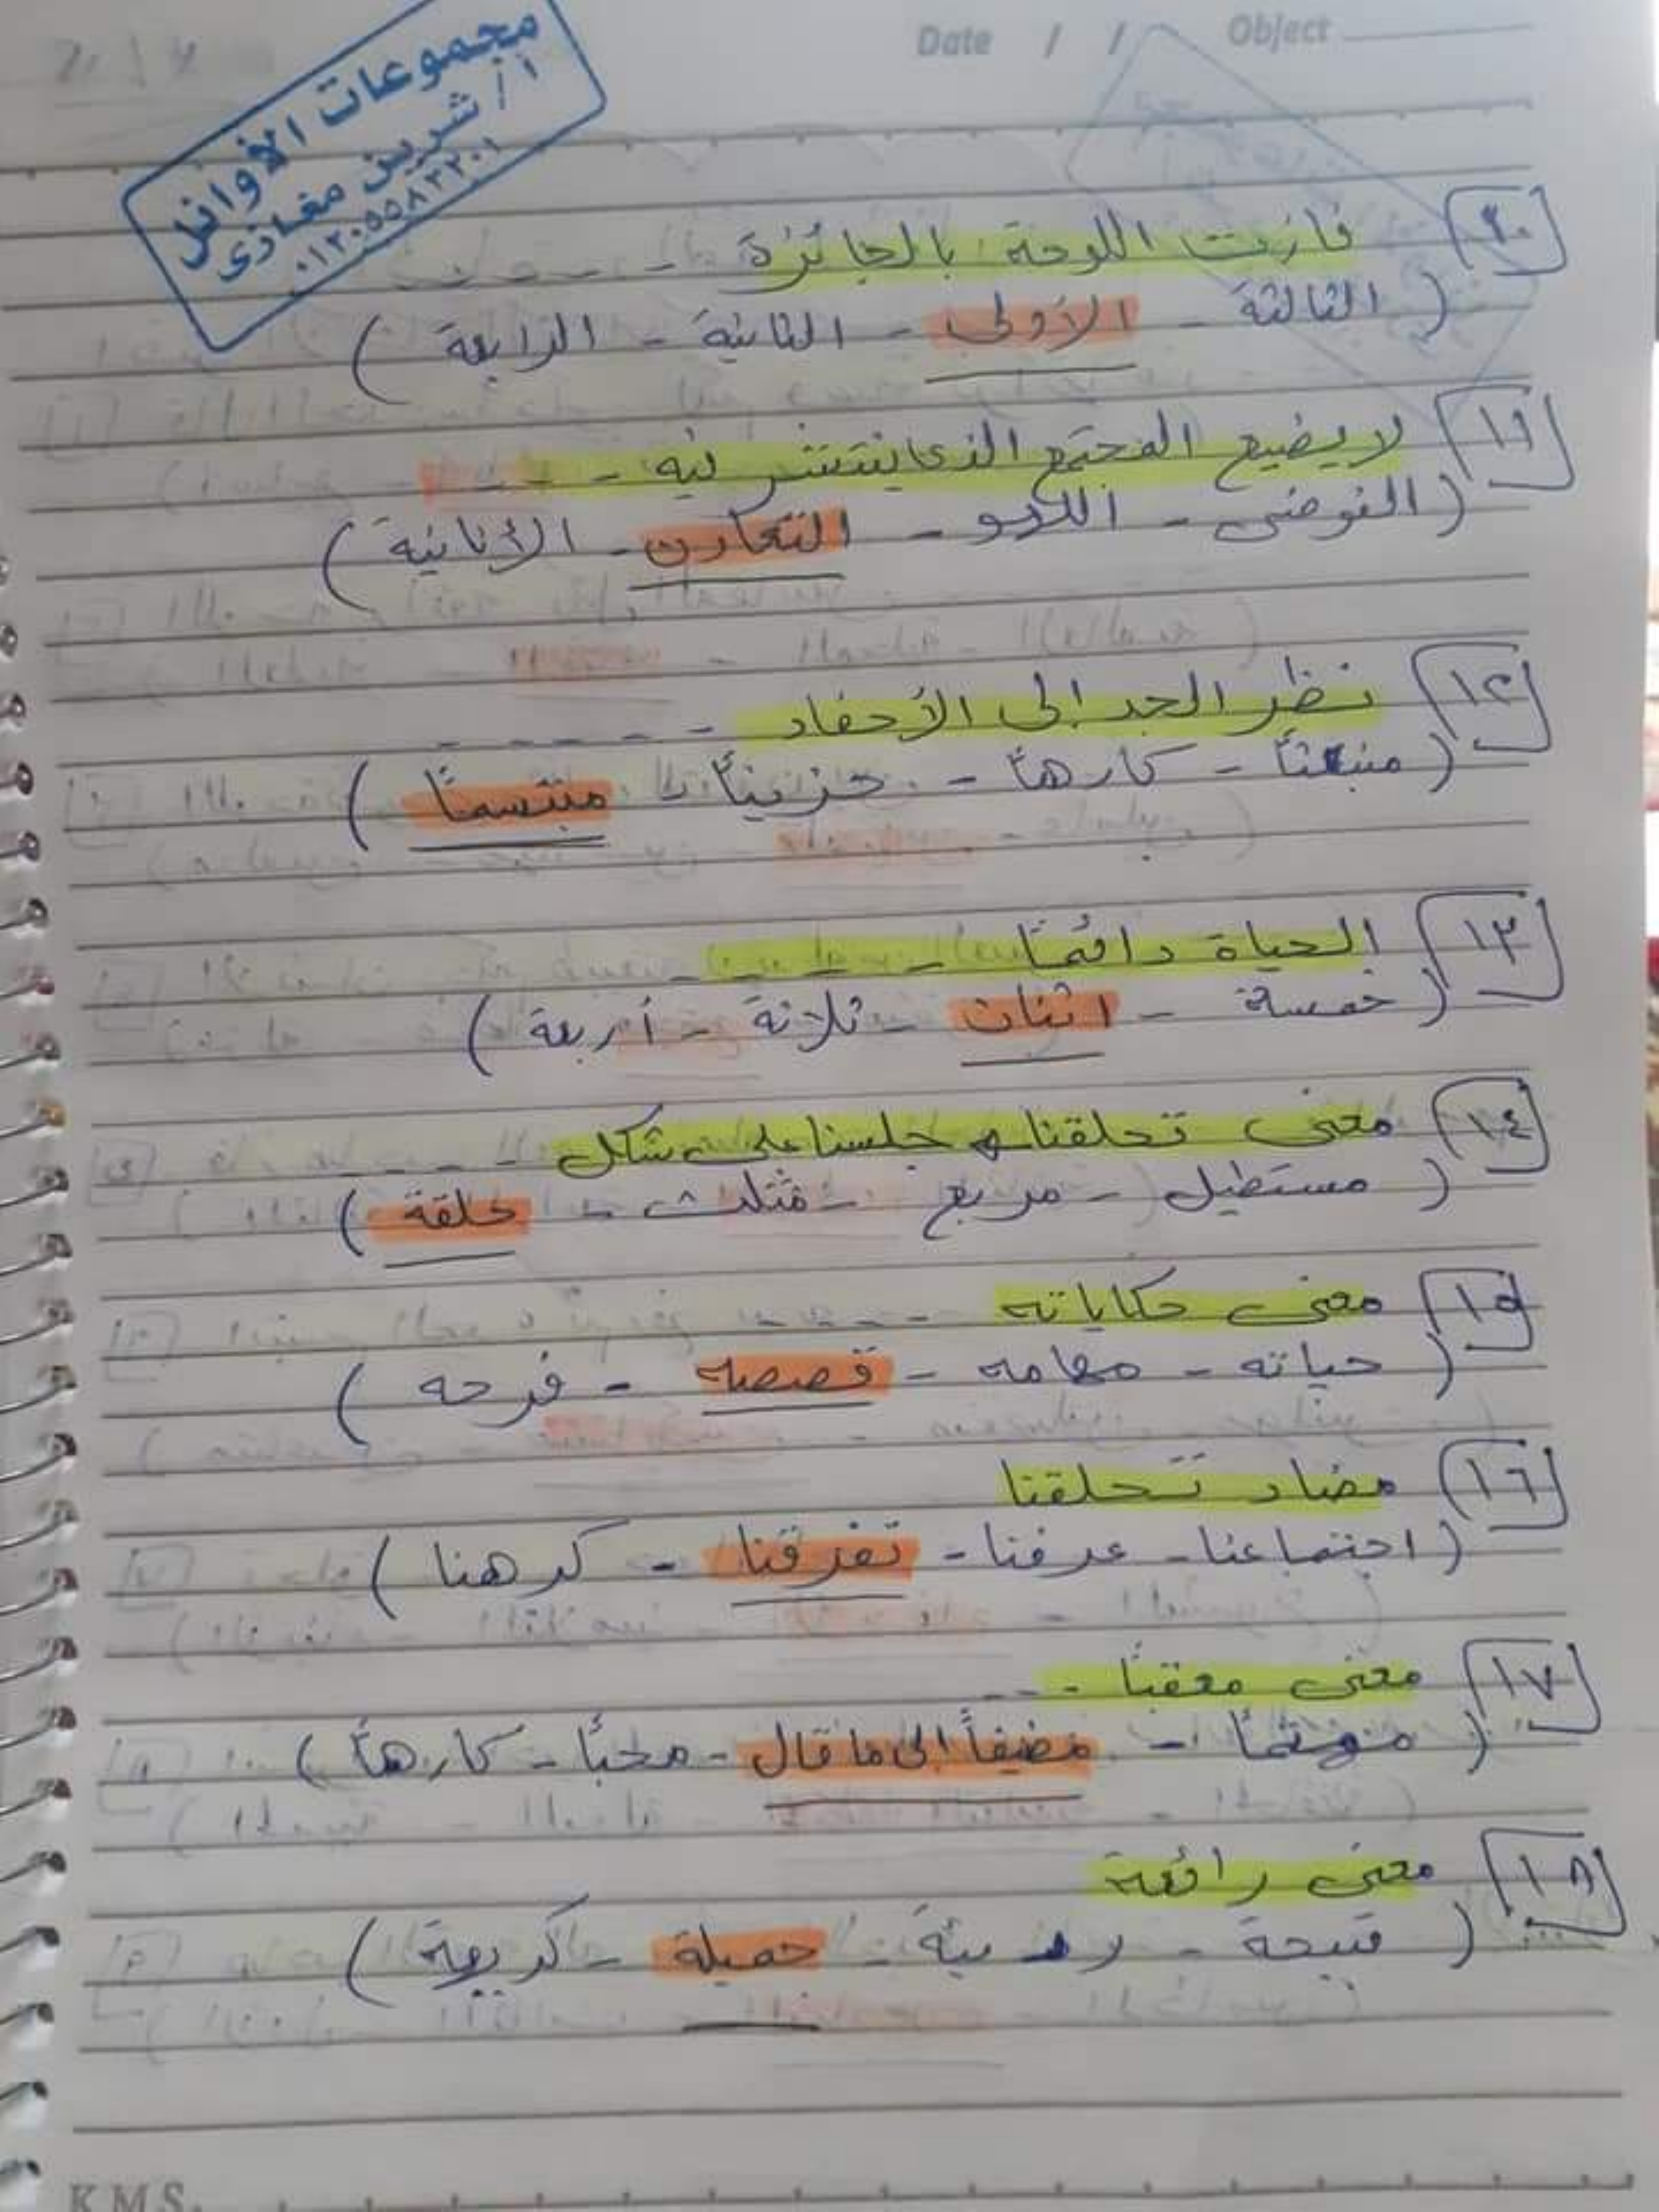 Date / / Object
مجموعات الأوائل
أ / شرين مغازى
٠١٢٠٥٥٨٣٢٠١
فازت اللوحة بالجائزة - - - -
( الثالثة - الأولى - الثانية - الرابعة )
١١ لا يضيع المجتمع الذى ينتشر فيه - - - -
( الفوضى - اللهو - التعاون - الأنانية )
١٢ نظر الجد إلى الأحفاد - - - - -
( - كارهاً - حزيناً - مبتسمًا )
١٣ الحياة دائمًا - - - -
( خمسة - اثنان - ثلاثة - أربعة )
١٤ معنى تحلقنا جلسنا على شكل - - - -
( مستطيل - مربع - مثلث - حلقة )
١٥ معنى حكاياته - - - -
( حياته - مهامه - قصصه - فرحه )
١٦ مضاد تَحلقنا
( اجتماعنا - عرفنا - تفرقنا - كرهنا )
١٧ معنى معقبًا - - -
( - مضيفاً إلى ما قال - محبًا - كارهاً )
١٨ معنى رائعة
( قبيحة - - جميلة - كريهة )
K M S.